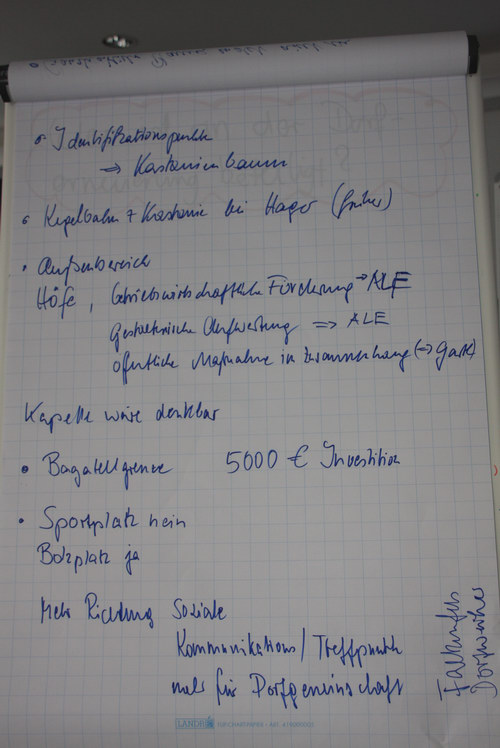 • Identifikationspunkte
⇒ Kastanienbaum
• Kegelbahn + Kastanie bei Hager (früher)
• Außenbereich
Höfe, betriebswirtschaftliche Förderung → ALE
gestalterische Aufwertung ⇒ ALE
öffentliche Maßnahme in Zusammenhang (⇒
Kapelle wäre denkbar
• Bagatellgrenze 5000 € Investition
• Sportplatz nein
Bolzplatz ja
Mehr Richtung Soziale
Kommunikations / Treffpunkte
mehr für Dorfgemeinschaft
LANDRÉ